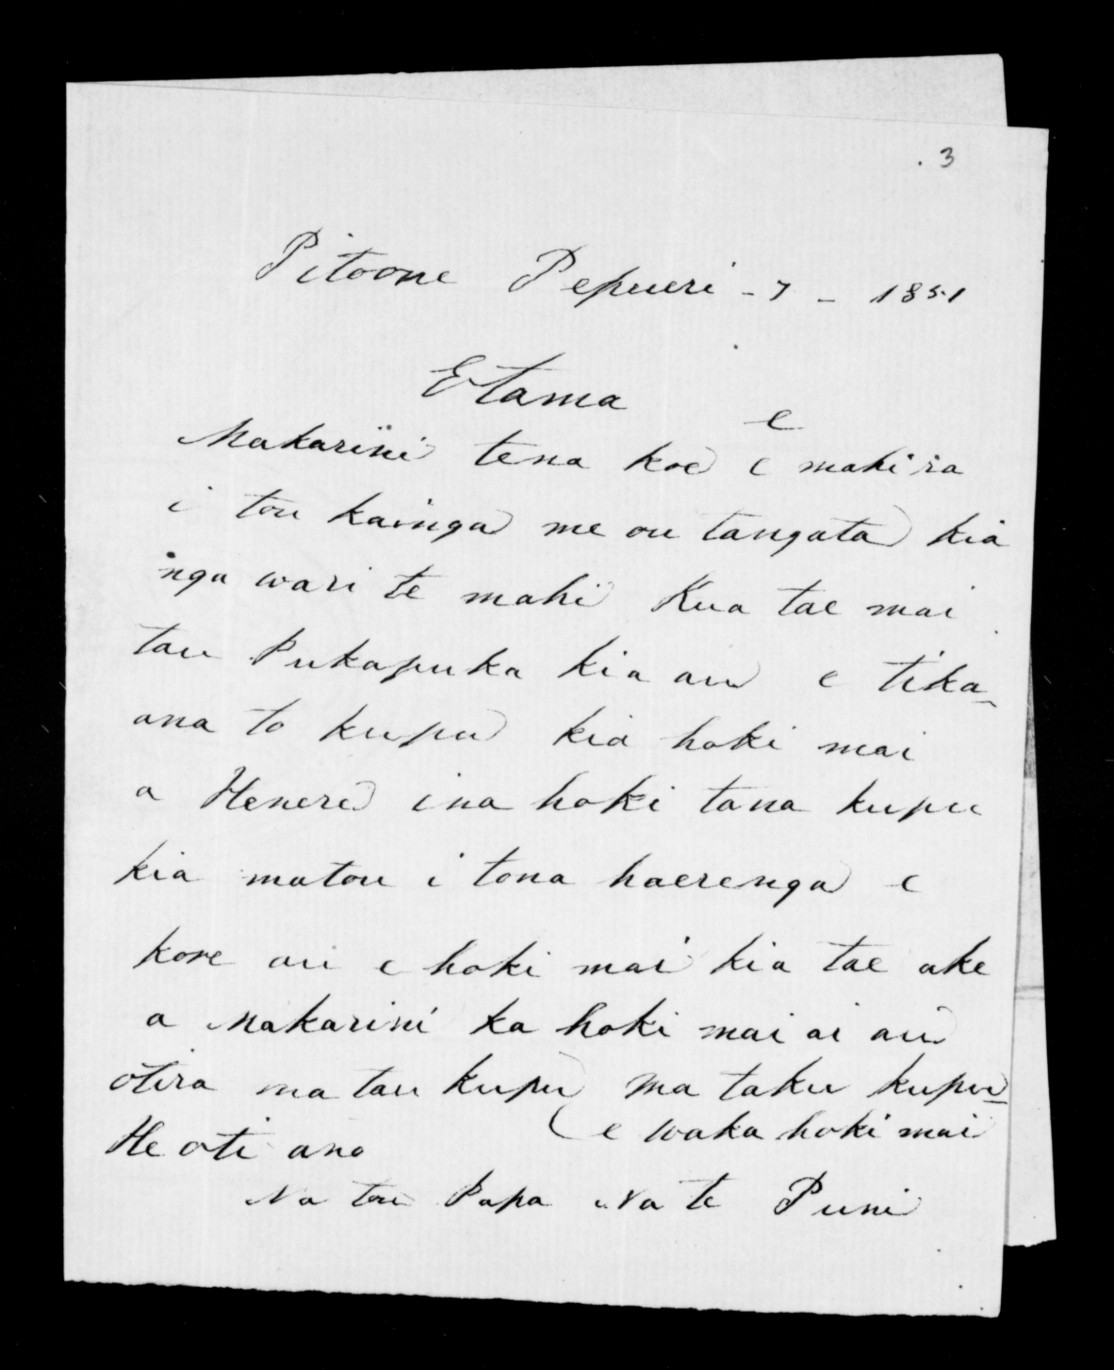 . 3
Pitoone Pepueri - 7 - 1851
E tama e
Makarini tena koe e mahi ra
i tou kainga me ou tangata kia
nga wari te mahi Kua tae mai
tau Pukapuka kia au e tika
ana to kupu kia hoki mai
a Henere ina hoki tana kupu
kia matou i tona haerenga e
kore au e hoki mai kia tae ake
a Makarini ka hoki mai ai au
otira ma tau kupu ma taku kupu
e waka hoki mai
He oti ano
Na tou Papa Na te Puni